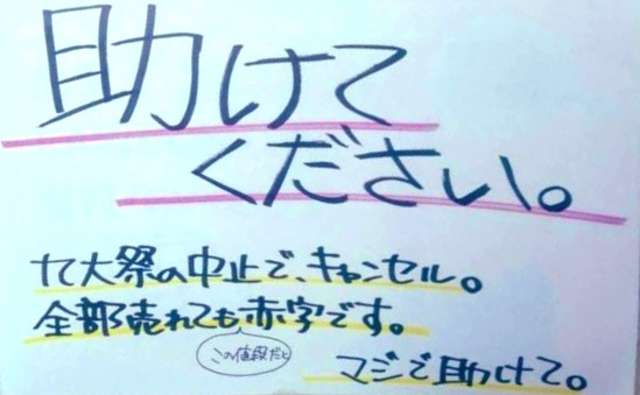 助けて
ください。
九大祭の中止で、キャンセル。
全部売れても赤字です。
この値段だと
マジで助けて。